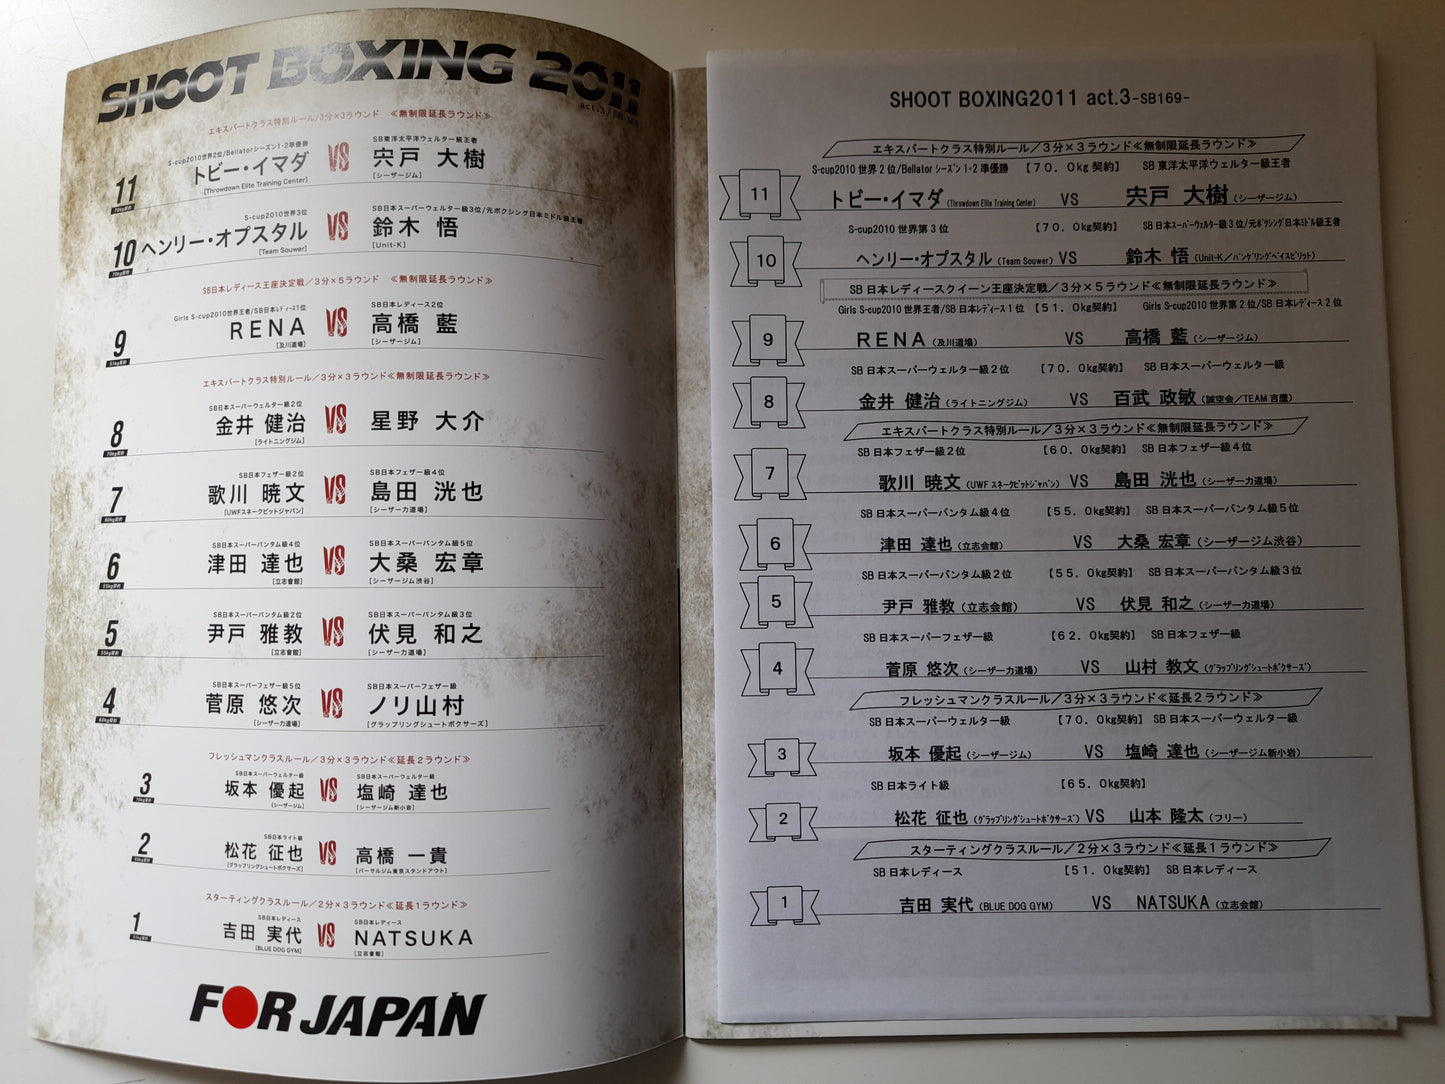 SHOOT BOXING 2011
act.3/SB 169
エキスパートクラス特別ルール/3分×3ラウンド ≪無制限延長ラウンド≫
S-cup2010世界2位/Bellatorシーズン1・2準優勝 SB東洋太平洋ウェルター級王者
11 トビー・イマダ VS 宍戸 大樹
70kg契約 [Throwdown Elite Training Center] [シーザージム]
S-cup2010世界3位 SB日本スーパーウェルター級3位/元ボクシング日本ミドル級王者
10 ヘンリー・オプスタル VS 鈴木 悟
70kg契約 [Team Souwer] [Unit-K]
SB日本レディース王座決定戦/3分×5ラウンド ≪無制限延長ラウンド≫
Girls S-cup2010世界王者/SB日本ﾚﾃﾞｨｰｽ1位 SB日本レディース2位
9 RENA VS 高橋 藍
51kg契約 [及川道場] [シーザージム]
エキスパートクラス特別ルール/3分×3ラウンド≪無制限延長ラウンド≫
SB日本スーパーウェルター級2位
8 金井 健治 VS 星野 大介
70kg契約 [ライトニングジム]
SB日本フェザー級2位 SB日本フェザー級4位
7 歌川 暁文 VS 島田 洸也
60kg契約 [UWFスネークピットジャパン] [シーザー力道場]
SB日本スーパーバンタム級4位 SB日本スーパーバンタム級5位
6 津田 達也 VS 大桑 宏章
55kg契約 [立志會館] [シーザージム渋谷]
SB日本スーパーバンタム級2位 SB日本スーパーバンタム級3位
5 尹戸 雅教 VS 伏見 和之
55kg契約 [立志會館] [シーザー力道場]
SB日本スーパーフェザー級5位 SB日本スーパーフェザー級
4 菅原 悠次 VS ノリ山村
[シーザー力道場] [グラップリングシュートボクサーズ]
フレッシュマンクラスルール/3分×3ラウンド≪延長2ラウンド≫
SB日本スーパーウェルター級 SB日本スーパーウェルター級
3 坂本 優起 VS 塩崎 達也
70kg契約 [シーザージム] [シーザージム新小岩]
SB日本ライト級
2 松花 征也 VS 高橋 一貴
65kg契約 [グラップリングシュートボクサーズ] [パーサルジム東京スタンドアウト]
スターティングクラスルール/2分×3ラウンド≪延長1ラウンド≫
SB日本レディース SB日本レディース
1 吉田 実代 VS NATSUKA
[BLUE DOG GYM] [立志會館]
FOR JAPAN
SHOOT BOXING2011 act.3-SB169-
エキスパートクラス特別ルール/3分×3ラウンド≪無制限延長ラウンド≫
S-cup2010 世界2位/Bellator ｼｰｽﾞﾝ 1・2 準優勝 【70.0kg 契約】 SB 東洋太平洋ウェルター級王者
11 トビー・イマダ (Throwdown Elite Training Center) VS 宍戸 大樹 (シーザージム)
S-cup2010 世界第3位 【70.0kg契約】 SB 日本ｽｰﾊﾟｰｳｪﾙﾀｰ級3位/元ﾎﾞｸｼﾝｸﾞ日本ﾐﾄﾞﾙ級王者
10 ヘンリー・オプスタル (Team Souwer) VS 鈴木 悟 (Unit-K/ﾊﾞﾝｹﾞﾘﾝｸﾞﾍﾞｲｽﾋﾟﾘｯﾄ)
SB 日本レディースクイーン王座決定戦/3分×5ラウンド≪無制限延長ラウンド≫
Girls S-cup2010 世界王者/SB 日本ﾚﾃﾞｨｰｽ1位 【51.0kg契約】 Girls S-cup2010 世界第2位/SB 日本ﾚﾃﾞｨｰｽ2位
9 RENA (及川道場) VS 高橋 藍 (シーザージム)
SB 日本スーパーウェルター級2位 【70.0kg契約】 SB 日本スーパーウェルター級
8 金井 健治 (ライトニングジム) VS 百武 政敏 (誠空会/TEAM 吉鷹)
エキスパートクラス特別ルール/3分×3ラウンド≪無制限延長ラウンド≫
SB 日本フェザー級2位 【60.0kg契約】 SB 日本フェザー級4位
7 歌川 暁文 (UWF ｽﾈｰｸﾋﾟｯﾄｼﾞｬﾊﾟﾝ) VS 島田 洸也 (シーザー力道場)
SB 日本スーパーバンタム級4位 【55.0kg契約】 SB 日本スーパーバンタム級5位
6 津田 達也 (立志会館) VS 大桑 宏章 (シーザージム渋谷)
SB 日本スーパーバンタム級2位 【55.0kg契約】 SB 日本スーパーバンタム級3位
5 尹戸 雅教 (立志会館) VS 伏見 和之 (シーザー力道場)
SB 日本スーパーフェザー級 【62.0kg契約】 SB 日本フェザー級
4 菅原 悠次 (シーザー力道場) VS 山村 教文 (ｸﾞﾗｯﾌﾟﾘﾝｸﾞｼｭｰﾄﾎﾞｸｻｰｽﾞ)
フレッシュマンクラスルール/3分×3ラウンド≪延長2ラウンド≫
SB 日本スーパーウェルター級 【70.0kg契約】 SB 日本スーパーウェルター級
3 坂本 優起 (シーザージム) VS 塩崎 達也 (シーザージム新小岩)
SB 日本ライト級 【65.0kg契約】
2 松花 征也 (ｸﾞﾗｯﾌﾟﾘﾝｸﾞｼｭｰﾄﾎﾞｸｻｰｽﾞ) VS 山本 隆太 (フリー)
スターティングクラスルール/2分×3ラウンド≪延長1ラウンド≫
SB 日本レディース 【51.0kg契約】 SB 日本レディース
1 吉田 実代 (BLUE DOG GYM) VS NATSUKA (立志会館)